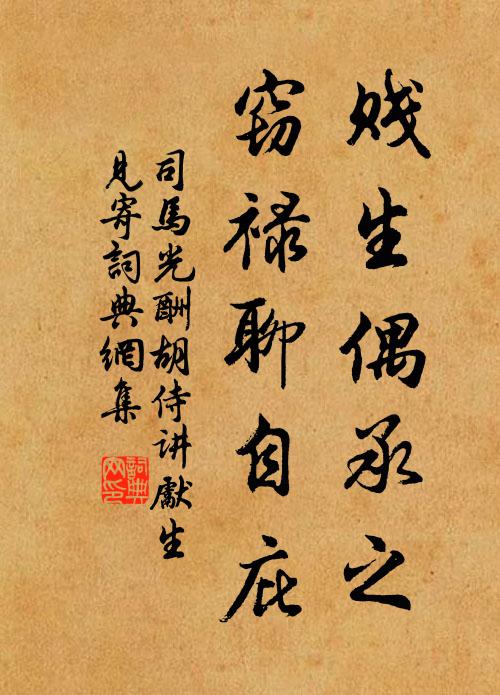 贱生偶承乏
窃禄聊自庇
司馬光酬胡侍讲獻生
見寄詞典網集
詞典
网印